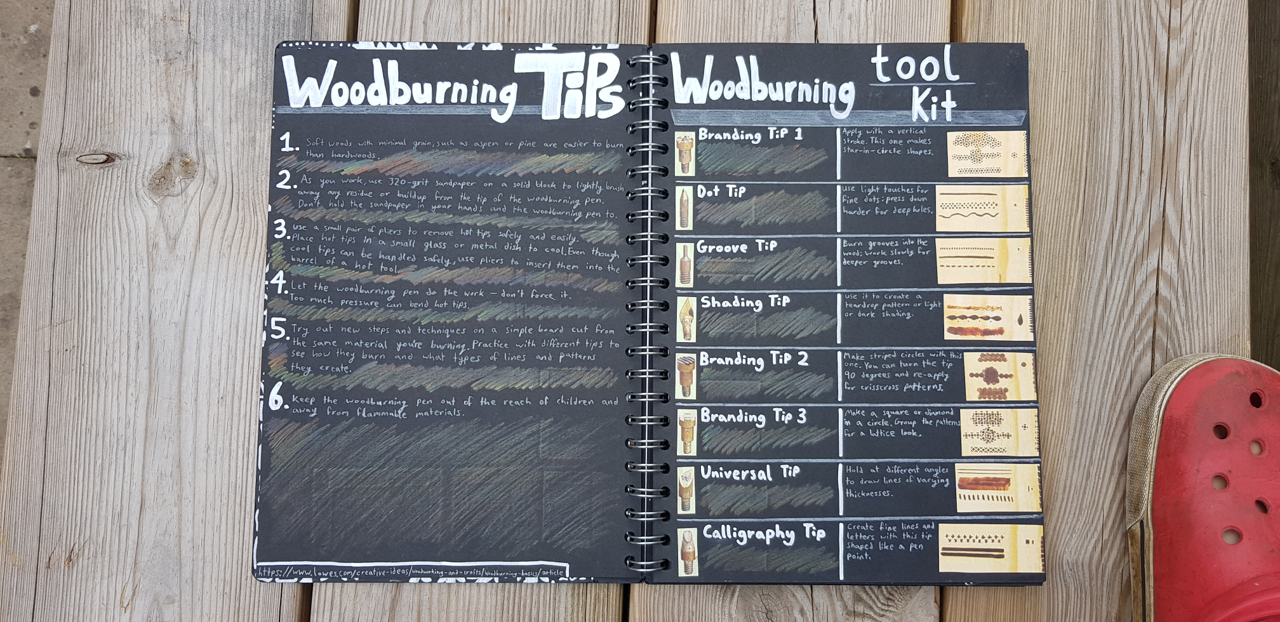 Woodburning TiPs
1. Soft woods with minimal grain, such as aspen or pine are easier to burn
than hardwoods.
2. As you work, use 320-grit sandpaper on a solid block to lightly brush
away any residue or buildup from the tip of the woodburning pen.
Don't hold the sandpaper in your hands and the woodburning pen to.
3. Use a small pair of pliers to remove hot tips safely and easily.
Place hot tips in a small glass or metal dish to cool. Even though
cool tips can be handled safely, use pliers to insert them into the
barrel of a hot tool.
4. Let the woodburning pen do the work – don't force it.
Too much pressure can bend hot tips.
5. Try out new steps and techniques on a simple board cut from
the same material you're burning. Practice with different tips to
see how they burn and what types of lines and patterns
they create.
6. Keep the woodburning pen out of the reach of children and
away from flammable materials.
https://www.lowes.com/creative-ideas/woodworking-and-crafts/woodburning-basics/article
Woodburning tool
Kit
Branding TiP 1
Apply with a vertical
stroke. This one makes
star-in-circle shapes.
Dot Tip
Use light touches for
fine dots; press down
harder for deep holes.
Groove Tip
Burn grooves into the
wood; work slowly for
deeper grooves.
Shading TiP
Use it to create a
teardrop pattern or light
or dark shading.
Branding Tip 2
Make striped circles with this
one. You can turn the tip
90 degrees and re-apply
for crisscross patterns.
Branding Tip 3
Make a square or diamond
in a circle. Group the patterns
for a lattice look.
Universal Tip
Hold at different angles
to draw lines of varying
thicknesses.
Calligraphy Tip
Create fine lines and
letters with this tip
shaped like a pen
point.